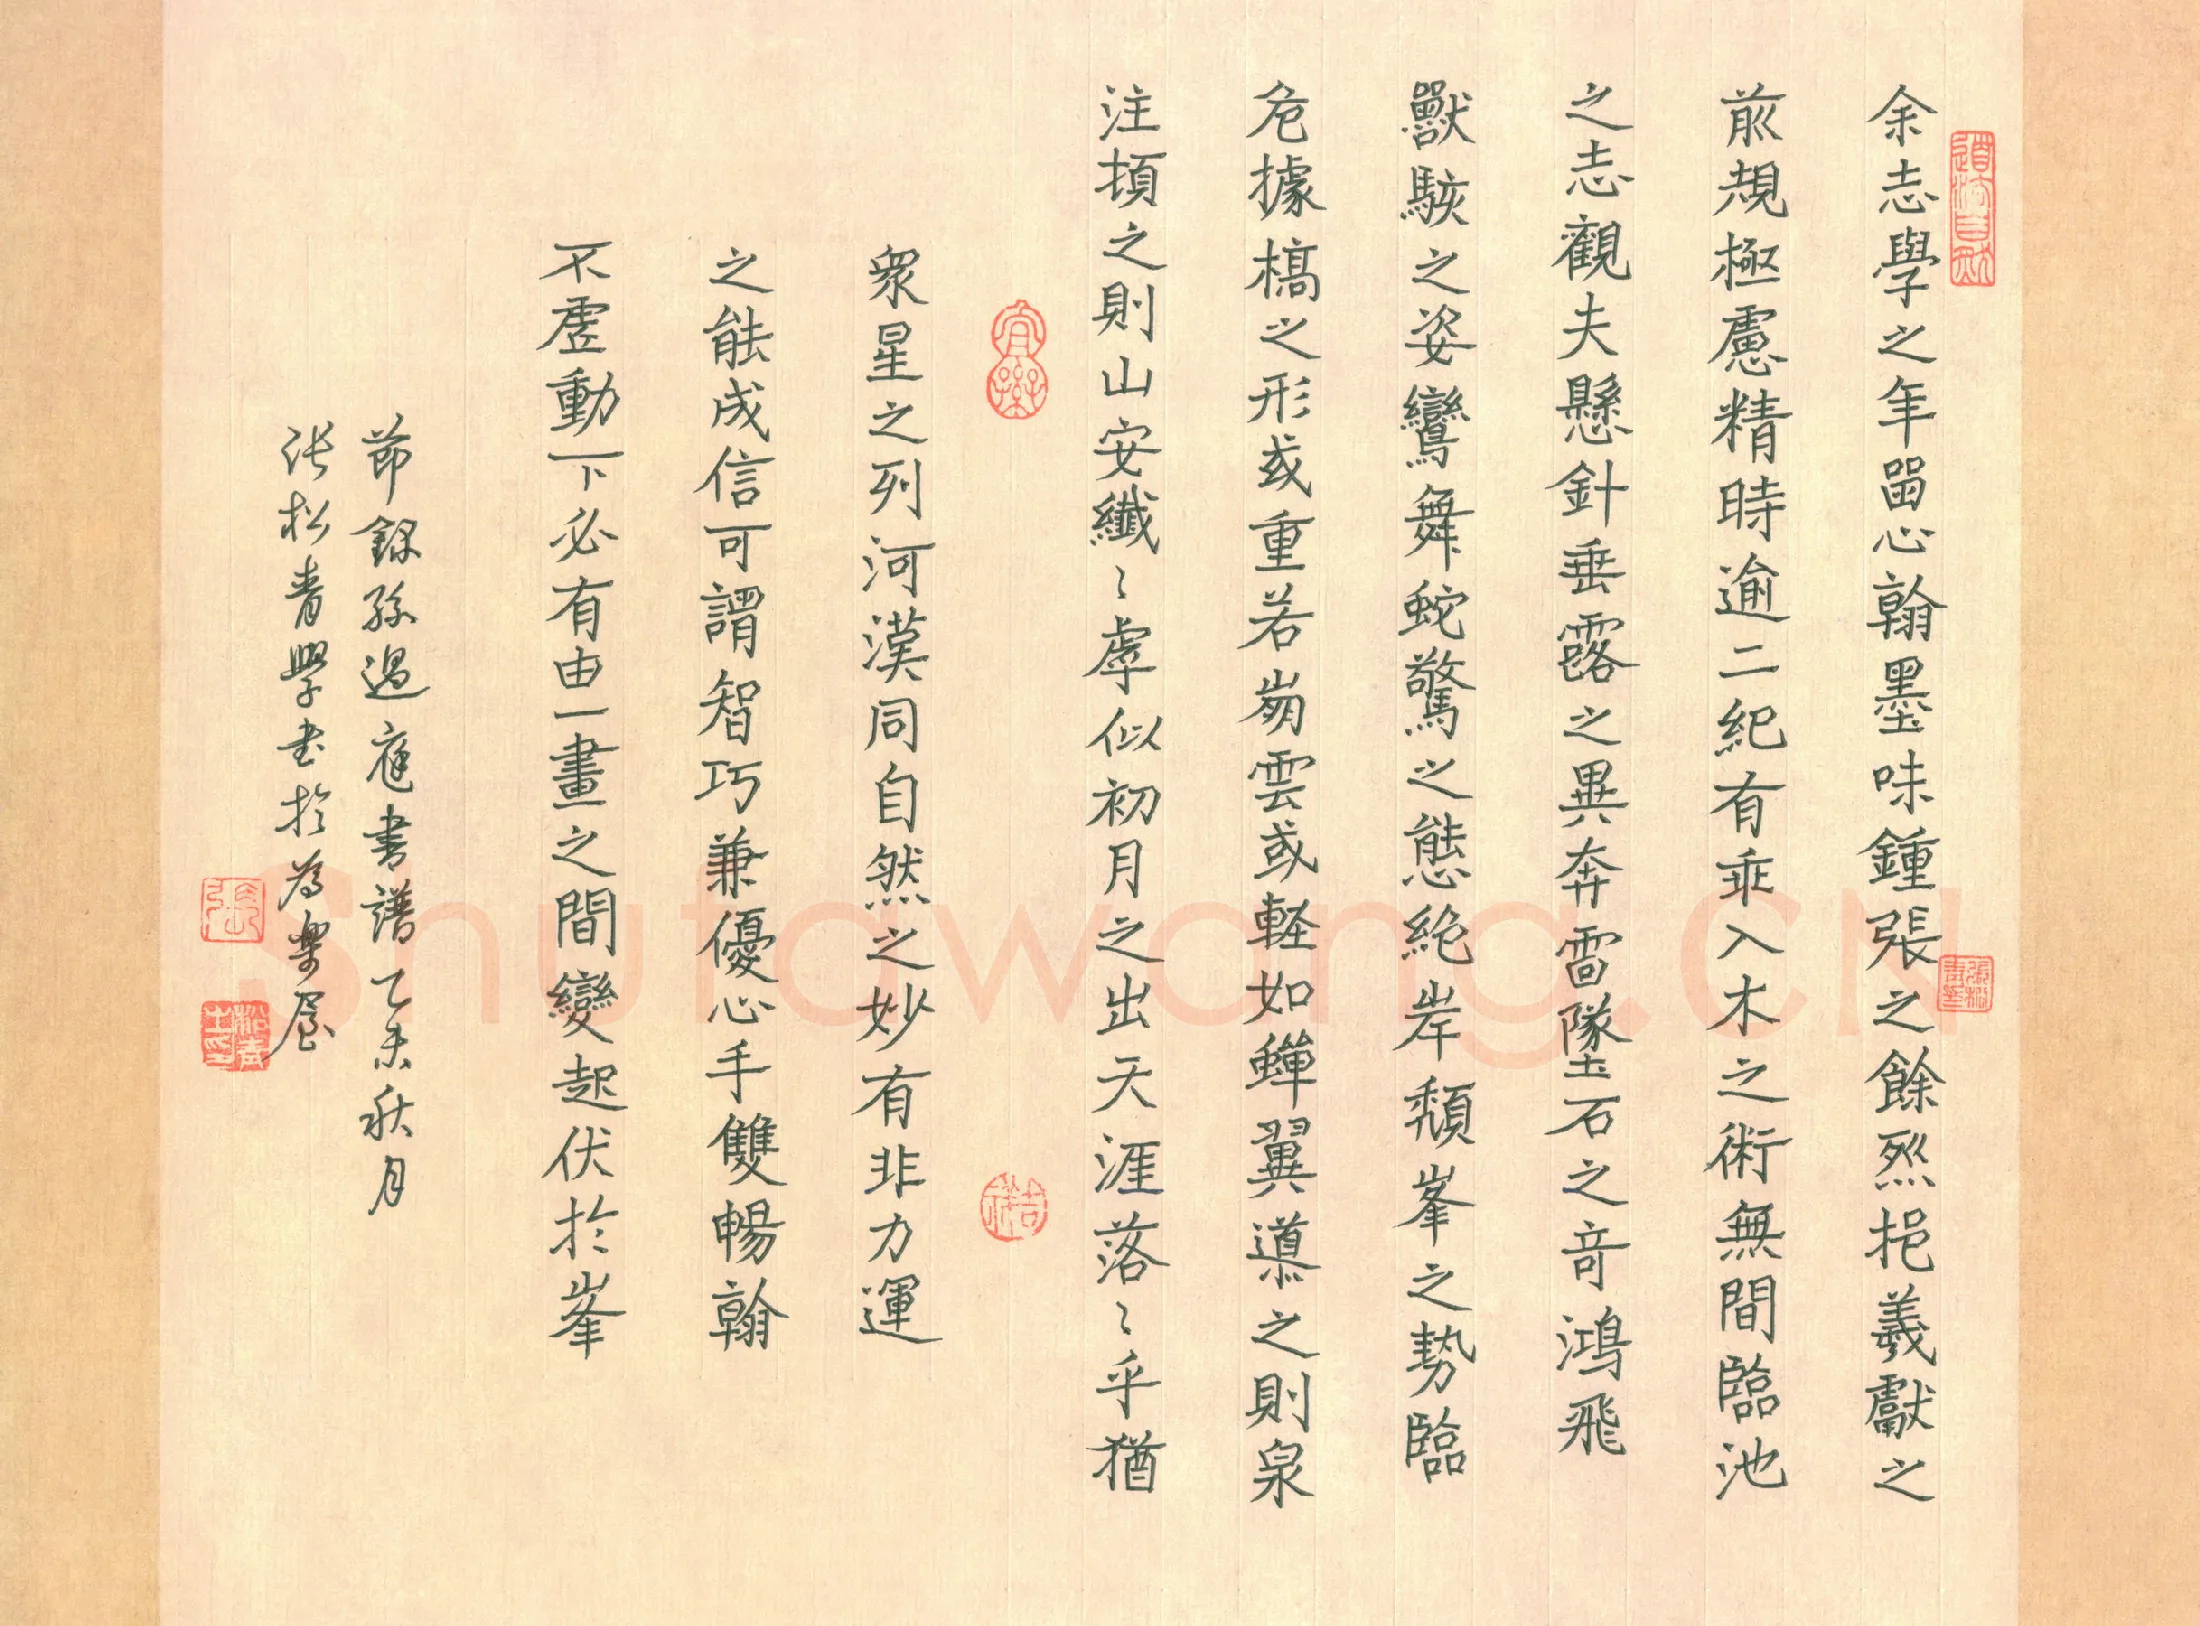 余志學之年畱心翰墨味鍾張之餘烈挹羲獻之
前規極慮精時逾二紀有乖入木之術無間臨池
之志觀夫懸針垂露之異奔雷墜石之奇鴻飛
獸駭之姿鸞舞蛇驚之態絶岸頹峯之勢臨
危據槁之形或重若崩雲或軽如蟬翼導之則泉
注頓之則山安纖〻虖似初月之出天涯落〻乎猶
眾星之列河漢同自然之妙有非力運
之能成信可謂智巧兼優心手雙暢翰
不虛動下必有由一畫之間變起伏於峯
節錄孫過庭書譜乙未秋月
張松青學書於為樂居
Shufawang.CN